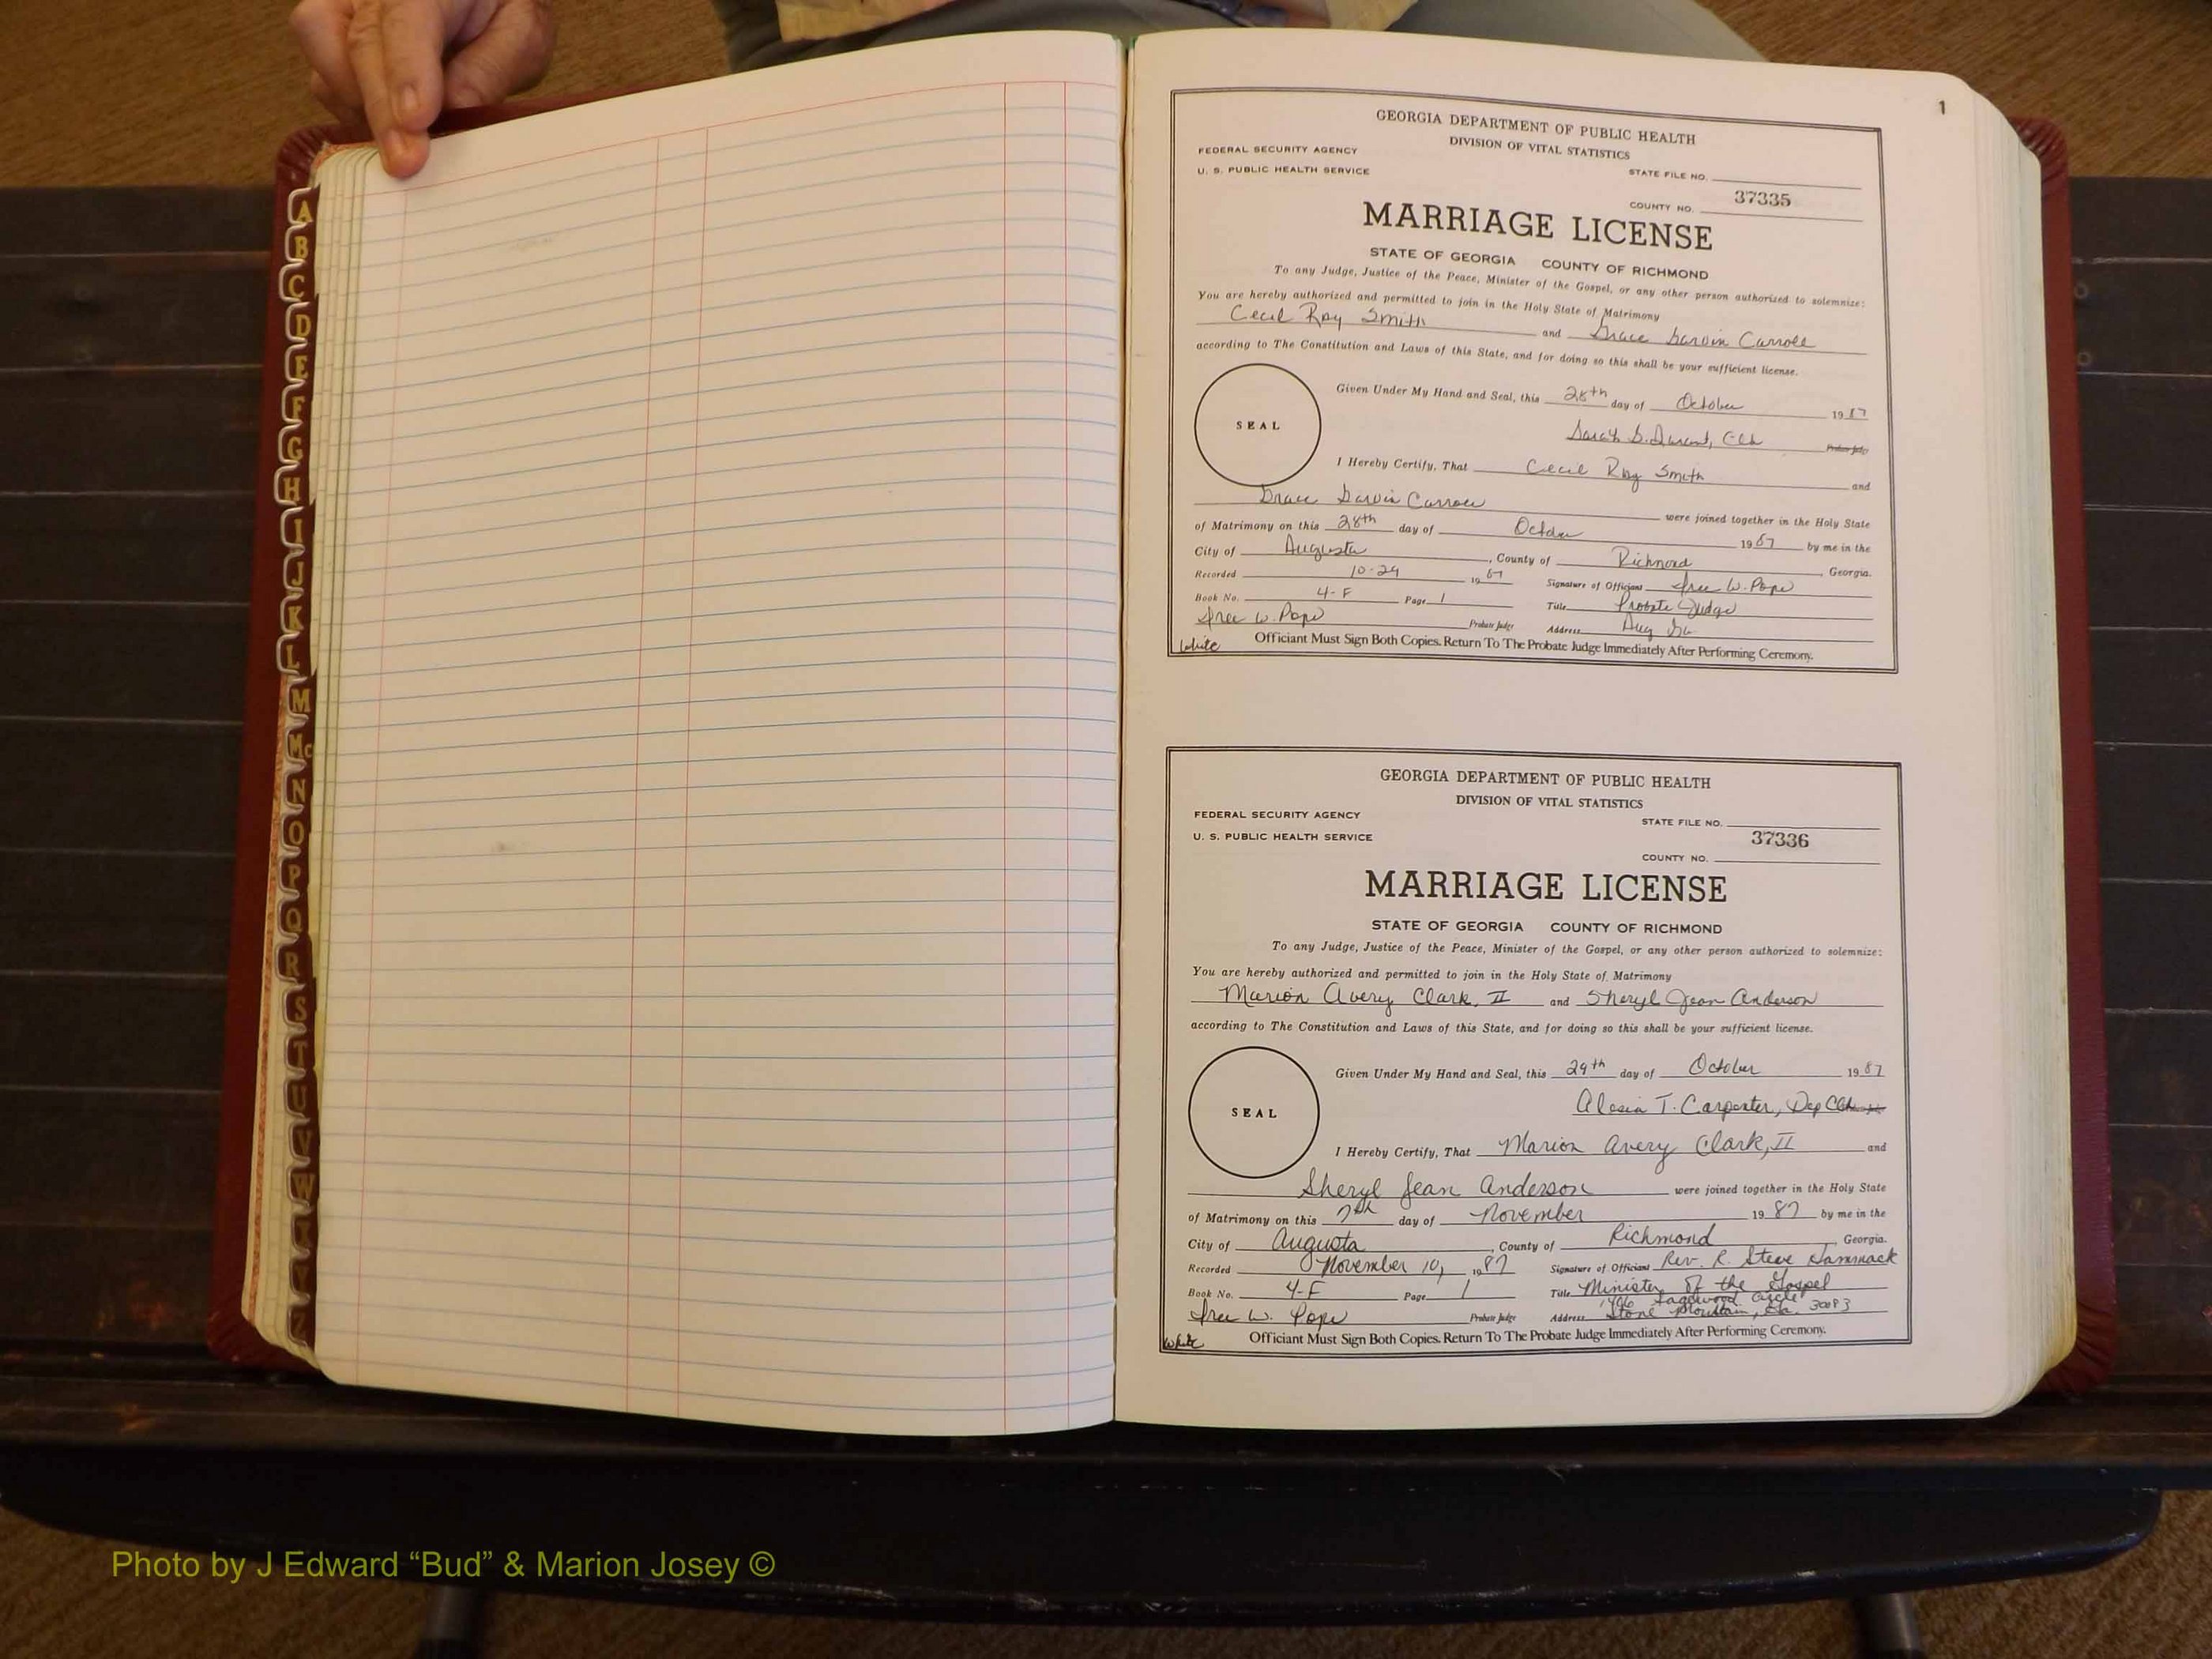 A
B
C
D
E
F
G
H
I
J
K
L
M
Mc
N
O
P
Q
R
S
T
U
V
W
X
Y
Z
1
GEORGIA DEPARTMENT OF PUBLIC HEALTH
DIVISION OF VITAL STATISTICS
FEDERAL SECURITY AGENCY
U. S. PUBLIC HEALTH SERVICE
STATE FILE NO.
37335
COUNTY NO.
MARRIAGE LICENSE
STATE OF GEORGIA COUNTY OF RICHMOND
To any Judge, Justice of the Peace, Minister of the Gospel, or any other person authorized to solemnize:
You are hereby authorized and permitted to join in the Holy State of Matrimony
Cecil Roy Smith and Grace Carroll
according to The Constitution and Laws of this State, and for doing so this shall be your sufficient license.
SEAL
Given Under My Hand and Seal, this 28th day of October 1987
Sarah Clk Probate Judge
I Hereby Certify, That Cecil Roy Smith and
Grace Carroll were joined together in the Holy State
of Matrimony on this 28th day of October 1987 by me in the
City of Augusta, County of Richmond Georgia.
Recorded 10-29 1987 Signature of Officiant W. Pope
Book No. 4-F Page 1 Title Probate Judge
W. Pope Probate Judge Address Aug Ga
White Officiant Must Sign Both Copies. Return To The Probate Judge Immediately After Performing Ceremony.
GEORGIA DEPARTMENT OF PUBLIC HEALTH
DIVISION OF VITAL STATISTICS
FEDERAL SECURITY AGENCY
U. S. PUBLIC HEALTH SERVICE
STATE FILE NO.
37336
COUNTY NO.
MARRIAGE LICENSE
STATE OF GEORGIA COUNTY OF RICHMOND
To any Judge, Justice of the Peace, Minister of the Gospel, or any other person authorized to solemnize:
You are hereby authorized and permitted to join in the Holy State of Matrimony
Marion Avery Clark, II and Sheryl Jean Anderson
according to The Constitution and Laws of this State, and for doing so this shall be your sufficient license.
SEAL
Given Under My Hand and Seal, this 29th day of October 1987
Alesia T. Carpenter, Dep Clk
I Hereby Certify, That Marion Avery Clark, II and
Sheryl Jean Anderson were joined together in the Holy State
of Matrimony on this 7th day of November 1987 by me in the
City of Augusta, County of Richmond Georgia.
Recorded November 10, 1987 Signature of Officiant Rev. R. Steve Hammack
Book No. 4-F Page 1 Title Minister of the Gospel
1406 Circle
W. Pope Probate Judge Address Stone Mountain, Ga. 30083
White Officiant Must Sign Both Copies. Return To The Probate Judge Immediately After Performing Ceremony.
Photo by J Edward “Bud” & Marion Josey ©